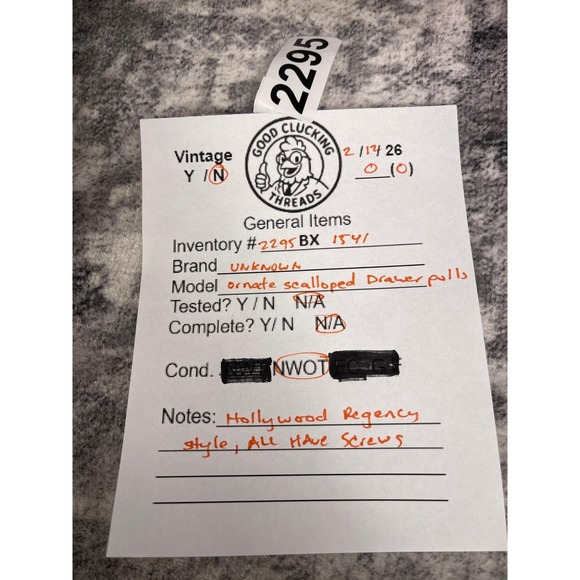 2295
GOOD CLUCKING
THREADS
Vintage
Y / N
2 / 14 26
0 (0)
General Items
Inventory # 2295 BX 1541
Brand UNKNOWN
Model ornate scalloped Drawer pulls
Tested? Y / N N/A
Complete? Y/ N N/A
Cond. NWOT
Notes: Hollywood Regency
style, ALL HAve Screws